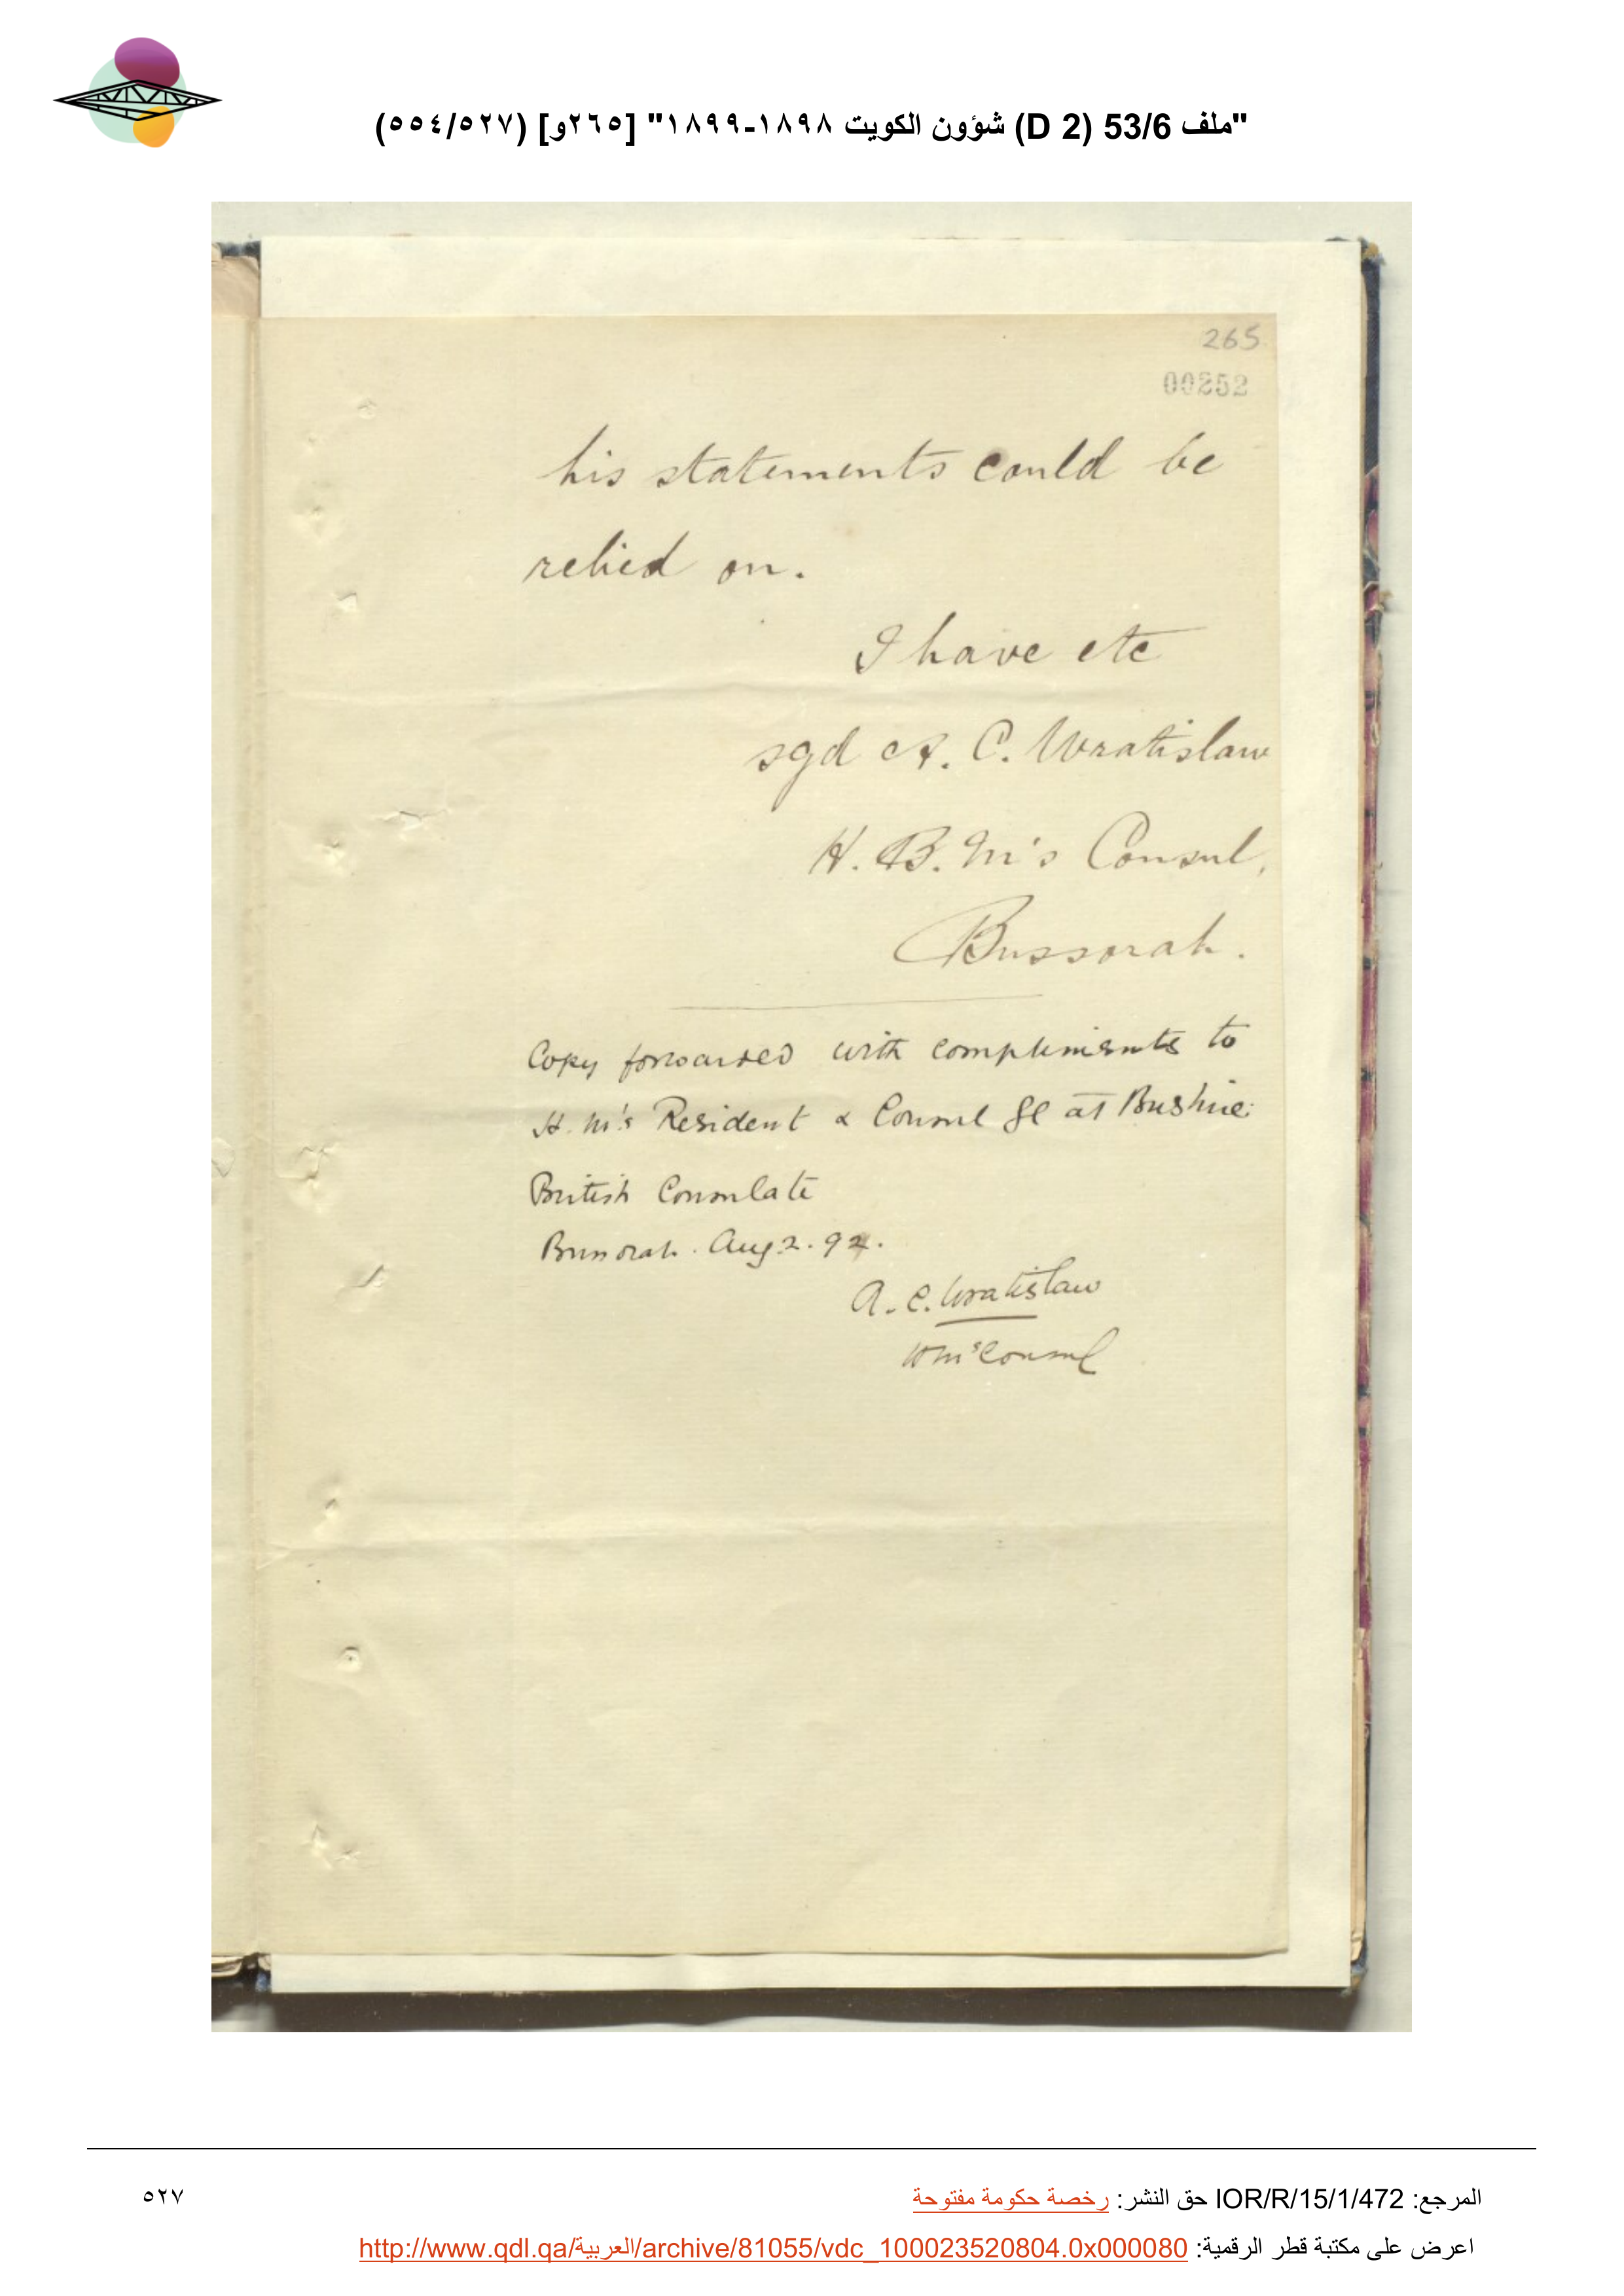 "ملف 53/6 (D 2) شؤون الكويت ١٨٩٨-١٨٩٩" [٢٦٥و] (٥٥٤/٥٢٧)
265
00252
his statements could be
relied on.
I have etc
sgd A. C. Wratislaw
H. B. M's Consul,
Bussorah.
Copy forwarded with compliments to
H. M's Resident & Consul Gl at Bushire
British Consulate
Bussorah. Aug 2. 99.
A. C. Wratislaw
HM's Consul
المرجع: IOR/R/15/1/472 حق النشر: رخصة حكومة مفتوحة
٥٢٧
اعرض على مكتبة قطر الرقمية: http://www.qdl.qa/العربية/archive/81055/vdc_100023520804.0x000080